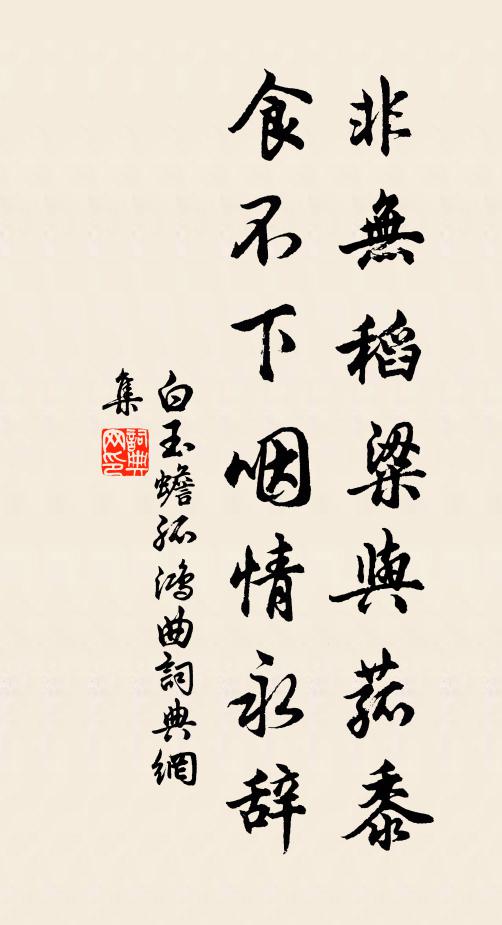 非無稻粱與菰黍
食不下咽情永辞
白玉蟾孤鴻曲詞典網
集
詞典
网印